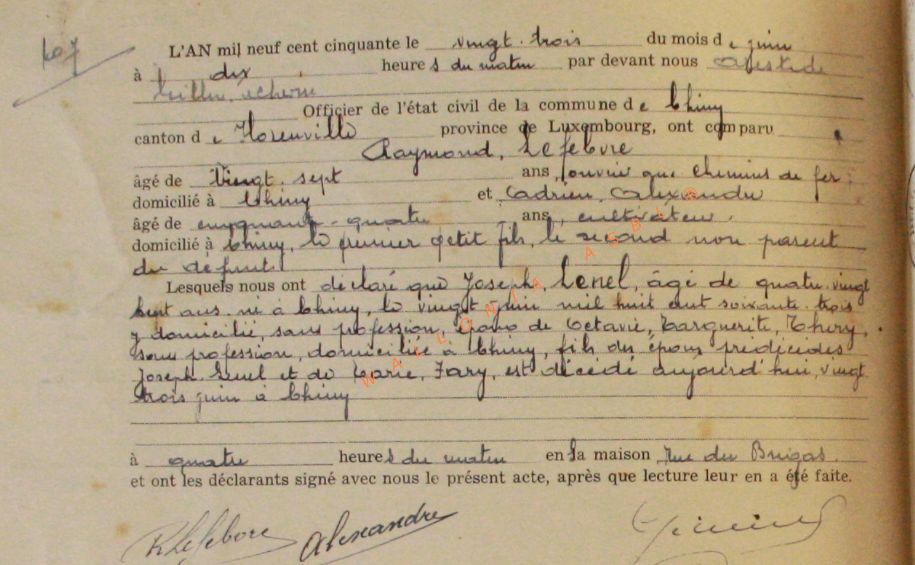 L'AN mil neuf cent cinquante le vingt-trois du mois de juin
à dix heures du matin par devant nous
échevin
Officier de l'état civil de la commune de Chiny
canton de Florenville province de Luxembourg, ont comparu
Raymond, Lefebvre
âgé de Vingt-sept ans, ouvrier aux chemins de fer
domicilié à Chiny et Adrien, Alexandre
âgé de cinquante-quatre ans, cultivateur.
domicilié à Chiny, le premier petit fils, le second non parent
du défunt
Lesquels nous ont déclaré que Joseph, Lenel, âgé de quatre-vingt
sept ans, né à Chiny, le vingt juin mil huit cent soixante-trois
y domicilié, sans profession, époux de Octavie, Marguerite, Thiry,
sans profession, domiciliée à Chiny, fils des époux prédécédés
Joseph Lenel et de Marie, Jary, est décédé aujourd'hui, vingt
trois juin à Chiny
à quatre heures du matin en sa maison, rue du
et ont les déclarants signé avec nous le présent acte, après que lecture leur en a été faite.
RLefebvre Alexandre